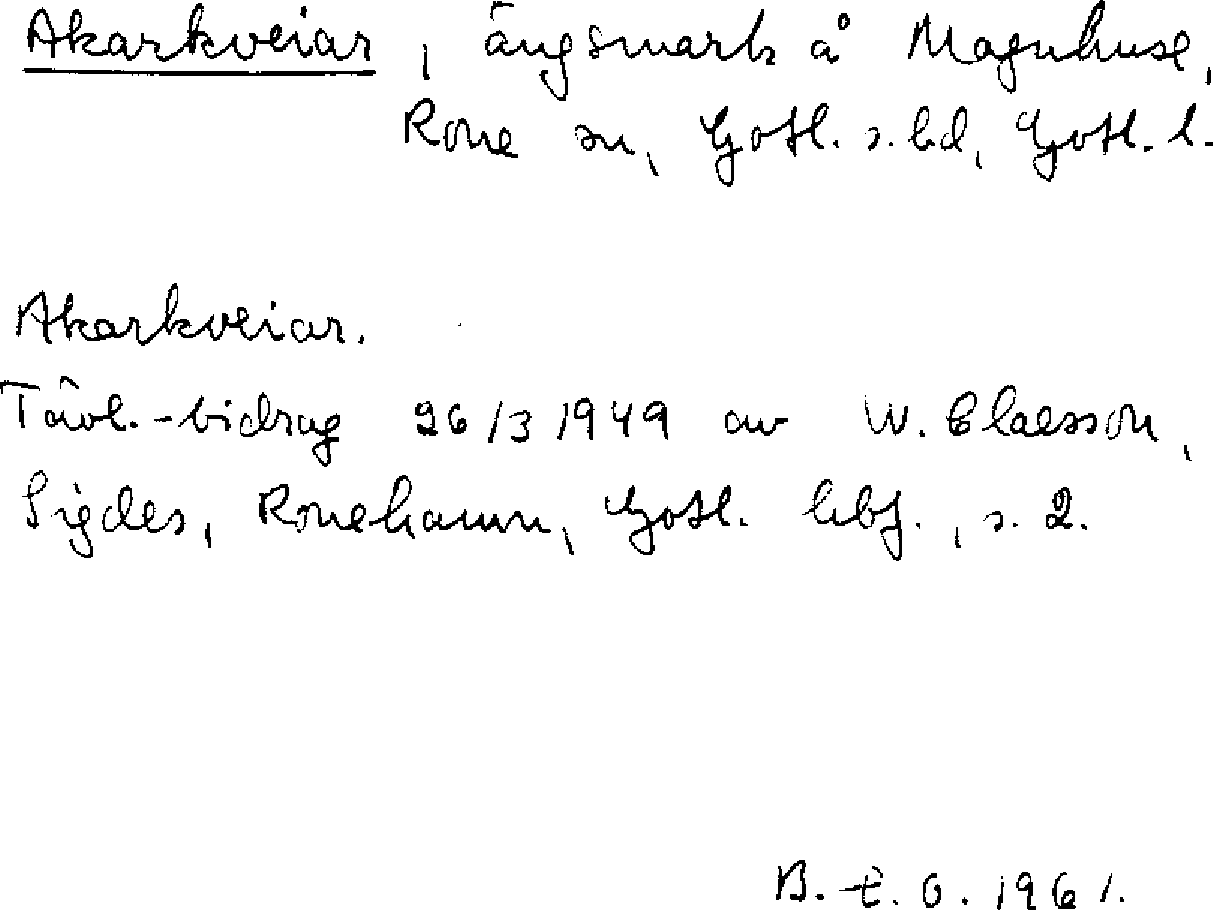 Akarkveiar, ängsmark å Magnhuse,
Rone sn, Gotl. s. hd, Gotl. l.
Akarkveiar.
Tävl.-bidrag 26/3 1949 av W. Claesson,
Sigdes, Ronehamn, Gotl. hbf., s. 2.
B. E. O. 1961.